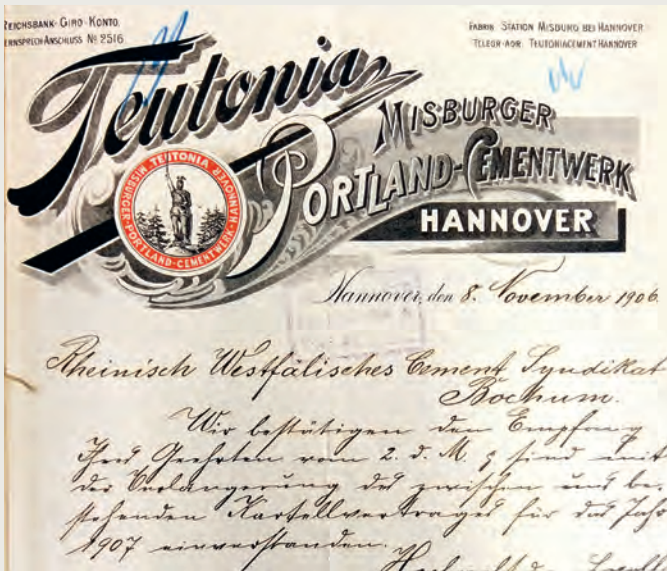 REICHSBANK-GIRO-KONTO.
FERNSPRECH-ANSCHLUSS Nº 2516
FABRIK STATION MISBURG BEI HANNOVER
TELEGR-ADR. TEUTONIACEMENT HANNOVER
Teutonia
MISBURGER
PORTLAND-CEMENTWERK
HANNOVER
TEUTONIA
MISBURGER-PORTLAND-CEMENTWERK-HANNOVER
Hannover, den 8. November 1906.
Rheinisch Westfälisches Cement Syndikat
Bochum.
Wir bestätigen den Empfang
Ihres Geehrten vom 2. d. M. & sind mit
der Verlängerung des zwischen uns be-
stehenden Kartellvertrages für das Jahr
1907 einverstanden.